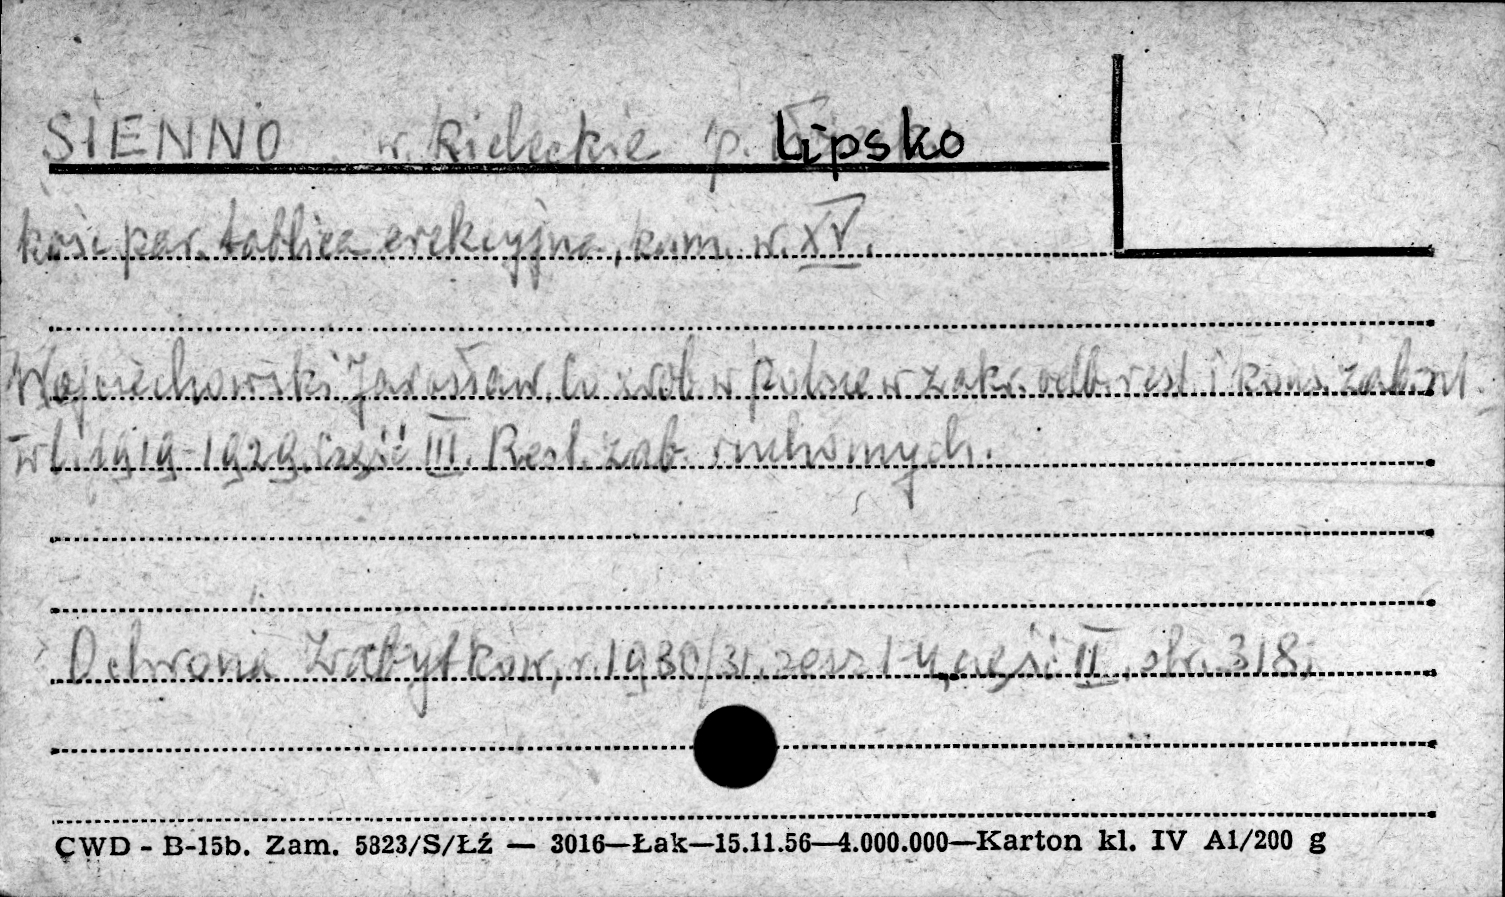 SIENNO w. kieleckie p. Lipsko
kośc. par. tablica erekcyjna, kam. w. XV.
Wojciechowski Jarosław. Co zrob. w Polsce w zakr. odb. rest. i kons. zab. szt.
w l. 1919-1929. Część III. Rest. zab. ruchomych.
Ochrona Zabytków, r. 1930/31. zesz 1-4, część II, str. 318;
CWD - B-15b. Zam. 5823/S/Łź — 3016—Łak—15.11.56—4.000.000—Karton kl. IV A1/200 g